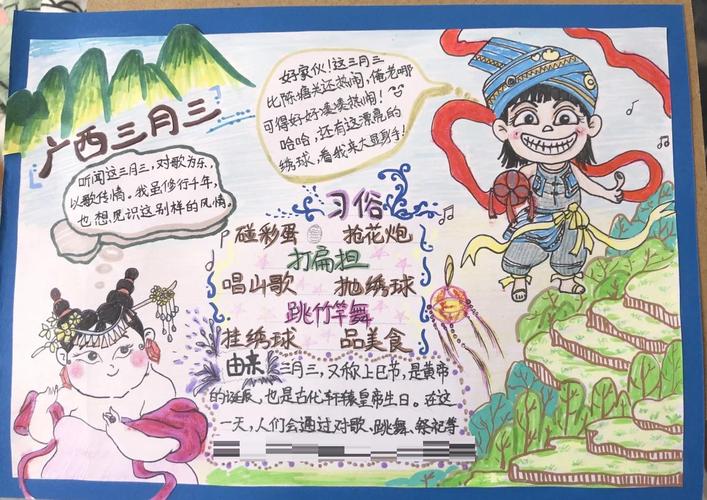 广西三月三
好家伙！这三月三
比陈塘关还热闹，俺老哪
可得好好凑凑热闹！
哈哈，还有这漂亮的
绣球，看我来大显身手！
听闻这三月三，对歌为乐，
以歌传情。我虽修行千年，
也想见识这别样的风情。
习俗
碰彩蛋 抢花炮
打扁担
唱山歌 抛绣球
跳竹竿舞
挂绣球 品美食
由来 三月三，又称上巳节，是黄帝
的诞辰，也是古代轩辕皇帝生日。在这
一天，人们会通过对歌、跳舞、祭祀等